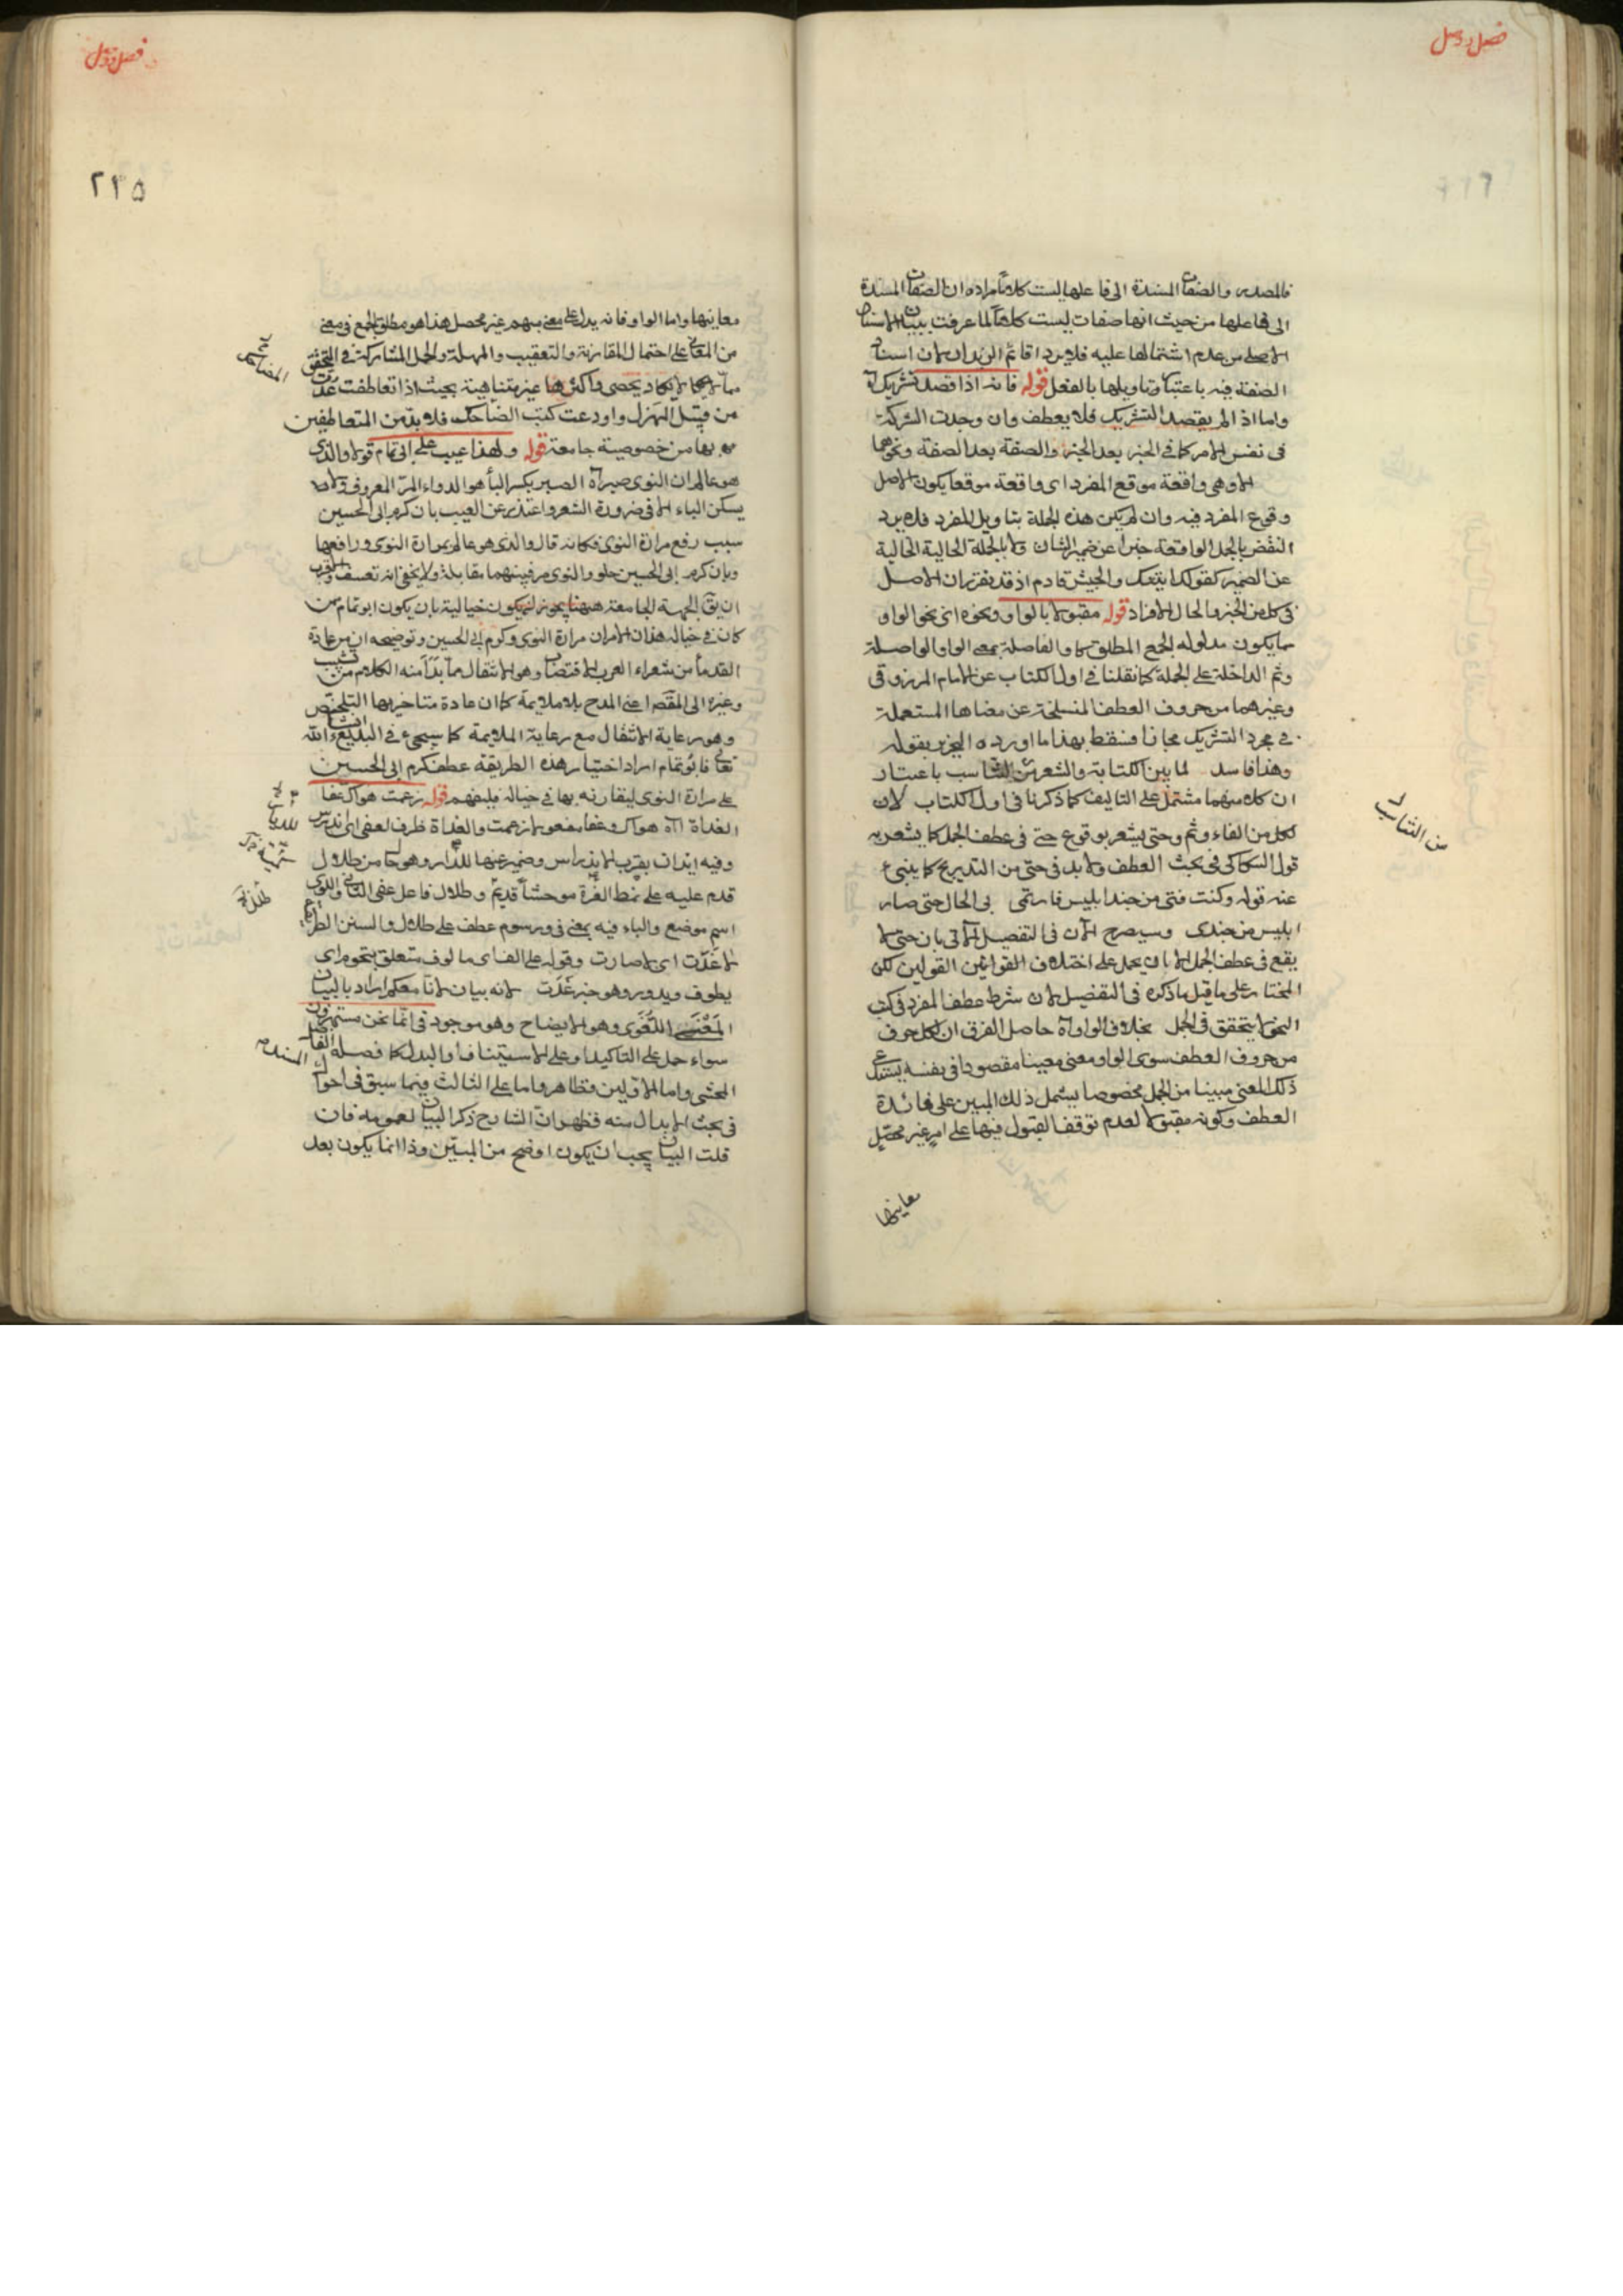 فصل وصل
فالمصدر والصفات المسندة الى فاعلها ليست كلاما مراده ان الصفات المسندة
الى فاعلها من حيث انها صفات ليست كلاما لما عرفت ببيان الاسناد
الاصلى من عدم اشتمالها عليه فلا يرد اقائم الزيدان لان اسناد
الصفة فيه باعتبار تاويلها بالفعل قوله فانه اذا قصد تشريك آه
واما اذا لم يقصد التشريك فلا يعطف وان وجدت الشركة
فى نفس الامر كما فى الخبر بعد الخبر والصفة بعد الصفة ونحوهما
الاوهى واقعة موقع المفرد اى واقعة موقعا يكون الاصل
وقوع المفرد فيه وان لم يكن هذه الجملة بتاويل المفرد فلا يرد
النقض بالجمل الواقعة خبرا عن ضمير الشان ولا بالجملة الحالية الخالية
عن الضمير كقولك اتيتك والجيش قادم اذ قد تقرر ان الاصل
فى كل من الخبر والحال الافراد قوله مقبولا بالواو ونحوه اى نحو الواو
مما يكون مدلوله الجمع المطلق كاو الفاصلة بمعنى الواو الواصلة
وثم الداخلة على الجملة كما نقلنا فى اول الكتاب عن الامام المرزوقى
وغيرهما من حروف العطف المنسلخة عن معناها المستعملة
فى مجرد التشريك مجازا فسقط بهذا ما اورده البعض بقوله
وهذا فاسد لما بين الكتابة والشعر من التناسب باعتبار
ان كلا منهما مشتمل على التاليف كما ذكرنا فى اول الكتاب لان
لكل من الفاء وثم وحتى يشعر بوقوع حتى فى عطف الجمل كما يشعر به
قول السكاكى فى بحث العطف ولا بد فى حتى من التدريج كما ينبئ
عنه قوله وكنت فتى من جند ابليس فارتمى بى الحال حتى صار
ابليس من جندى وسيصرح الآن فى التفصيل الآتى بان حتى لا
يقع فى عطف الجمل الا بان يحمل على اختلاف القولين لكن
المختار على ما قيل ما ذكره فى التفصيل لان شرط عطف المفرد فى كتب
النحو لا يتحقق فى الجمل بخلاف الواو آه حاصل الفرق ان لكل حرف
من حروف العطف سوى الواو معنى معينا مقصودا فى نفسه يستدعى
ذلك المعنى مبينا من الجمل مخصوصا يشمل ذلك المبين على فائدة
العطف وكونه مقبولا لعدم توقف القبول فيها على امر غير محصل
معانيها
من التناسب
فصل وصل
٢٢٥
معانيها واما الواو فانه يدل على معنى مبهم غير محصل هذا هو مطلق الجمع فى معنى
من المعانى على احتمال المقارنة والتعقيب والمهلة والجمل المشاركة فى التحقق
مما لا يكاد يحصى واكثرها غير متناهية بحيث اذا تعاطفت عدت
من قبيل الهزل واودعت كتب الضاحك فلا بد من المتعاطفين
بها من خصوصية جامعة قوله ولهذا عيب على ابى تمام قوله والذى
هو عالم ان النوى صبر آه الصبر بكسر الباء هو الدواء المر المعروف ولا
يسكن الباء الا فى ضرورة الشعر واعتذر عن العيب بان كرم ابى الحسين
سبب رفع مرارة النوى فكانه قال والذى هو عالم بمرارة النوى ورافعها
وبان كرم ابى الحسين حلو والنوى مر فبينهما مقابلة ولا يخفى انه تعسف والاقرب
ان يق الجهة الجامعة ههنا يجوز ان يكون خيالية بان يكون ابو تمام ممن
كان فى خياله هذان الامران مرارة النوى وكرم ابى الحسين وتوضيحه ان من عادة
القدماء من شعراء العرب الاقتضاب وهو الانتقال مما بدأ منه الكلام من تشبيب
وغيره الى المقصد اعنى المدح بلا ملايمة كما ان عادة متاخريها التلخيص
وهو رعاية الانتقال مع رعاية الملايمة كما سيجئ فى البديع ان شاء الله
تعالى فابو تمام اراد اختيار هذه الطريقة عطف كرم ابى الحسين
على مرارة النوى ليقارنه بها فى خياله فليفهم قوله زعمت هواك عفا
الغداة آه هواك وعفا مفعولا زعمت والغداة ظرف لعفى اى اندرس
وفيه ايذان بقرب الاندراس وضمير عنها للديار وهو حال من طلال
قدم عليه على نمط لعزة موحشا قديم وطلال فاعل عفى الثانى واللوى
اسم موضع والباء فيه بمعنى فى ورسوم عطف على طلال والسنن الطريق
لا غدت اى لا صارت وقوله على الف اى مالوف متعلق بتحوم اى
يطوف ويدور وهو خبر غدت لانه بيان لانا معكم اراد بالبيان
المعنى اللغوى وهو الايضاح وهو موجود فى انما نحن مستهزؤن
سواء حمل على التاكيد او على الاستيناف او البدل كما فصله الفاضل
المحشى واما الاولين فظاهر واما على الثالث فيما سبق فى احوال المسند
فى بحث الابدال منه فظهر ان الشارح ذكر البيان لعمومه فان
قلت البيان يجب ان يكون اوضح من المبين وذا انما يكون بعد